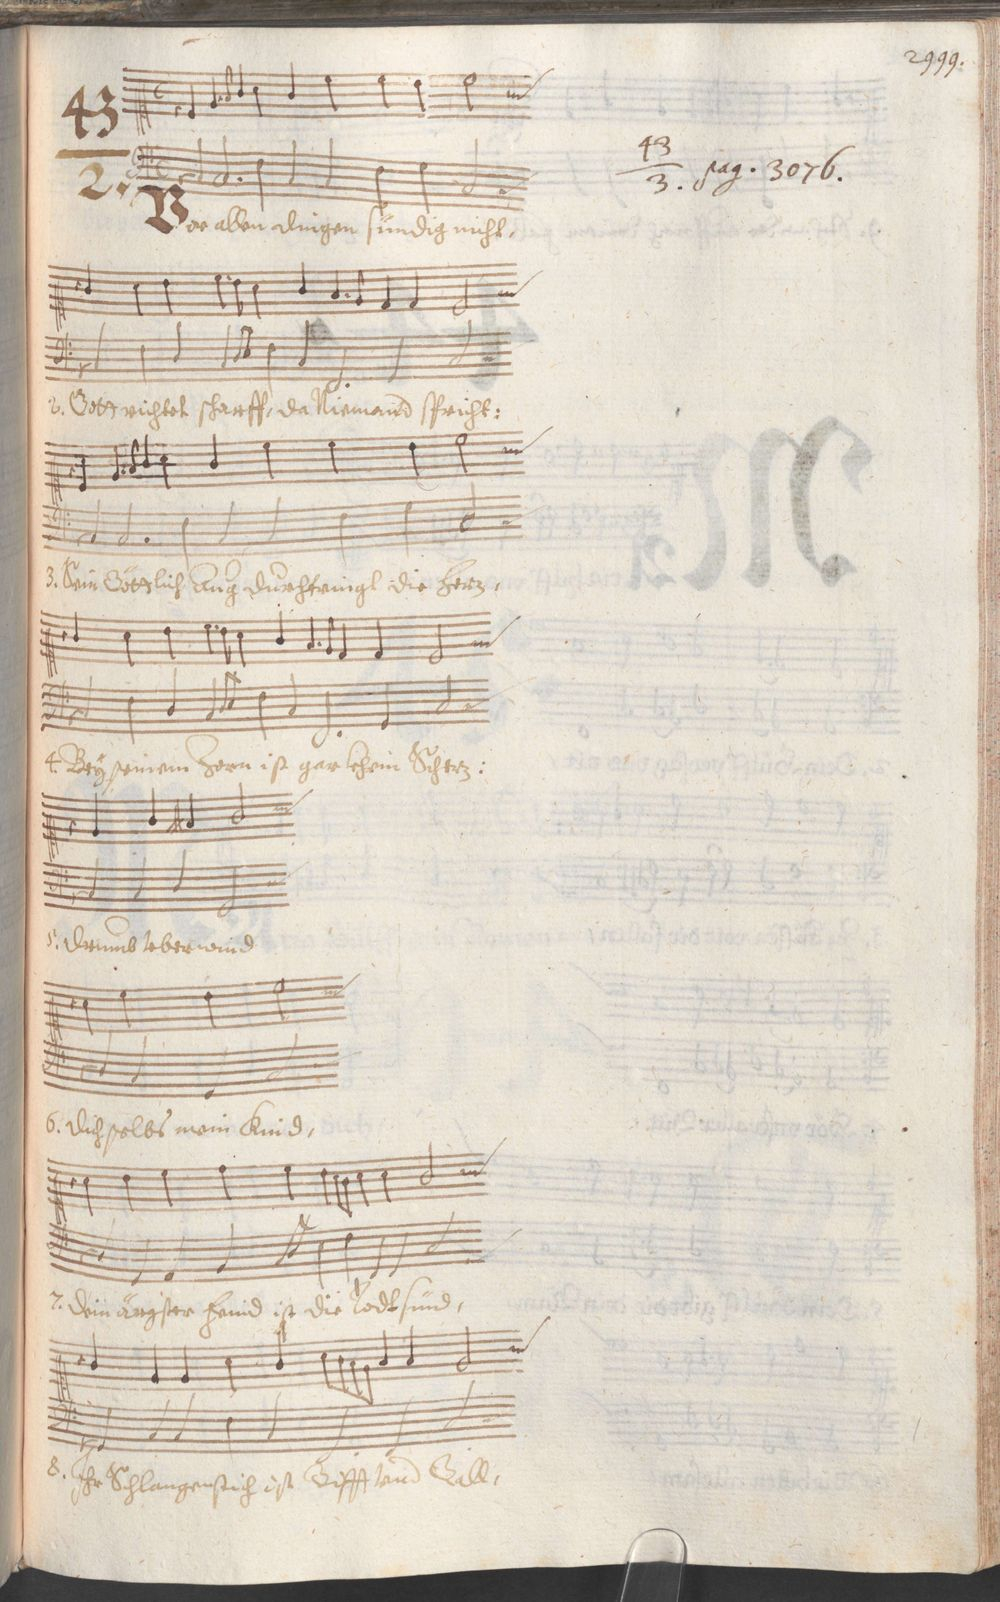 2999.
43
2.
43
3. pag. 3076.
Vor allen dingen sündig nicht,
2. Gott richtet scharff, da Niemand spricht:
3. Sein Göttlich Aug durchtringt die Herz,
4. Bey seinem Zorn ist gar khein Scherz:
5. drumb Ueberwind
6. dich selbs mein Kind,
7. dein ärgster feind ist die Todtsünd,
8. Ihr Schlangenstich ist Gifft und Gall,